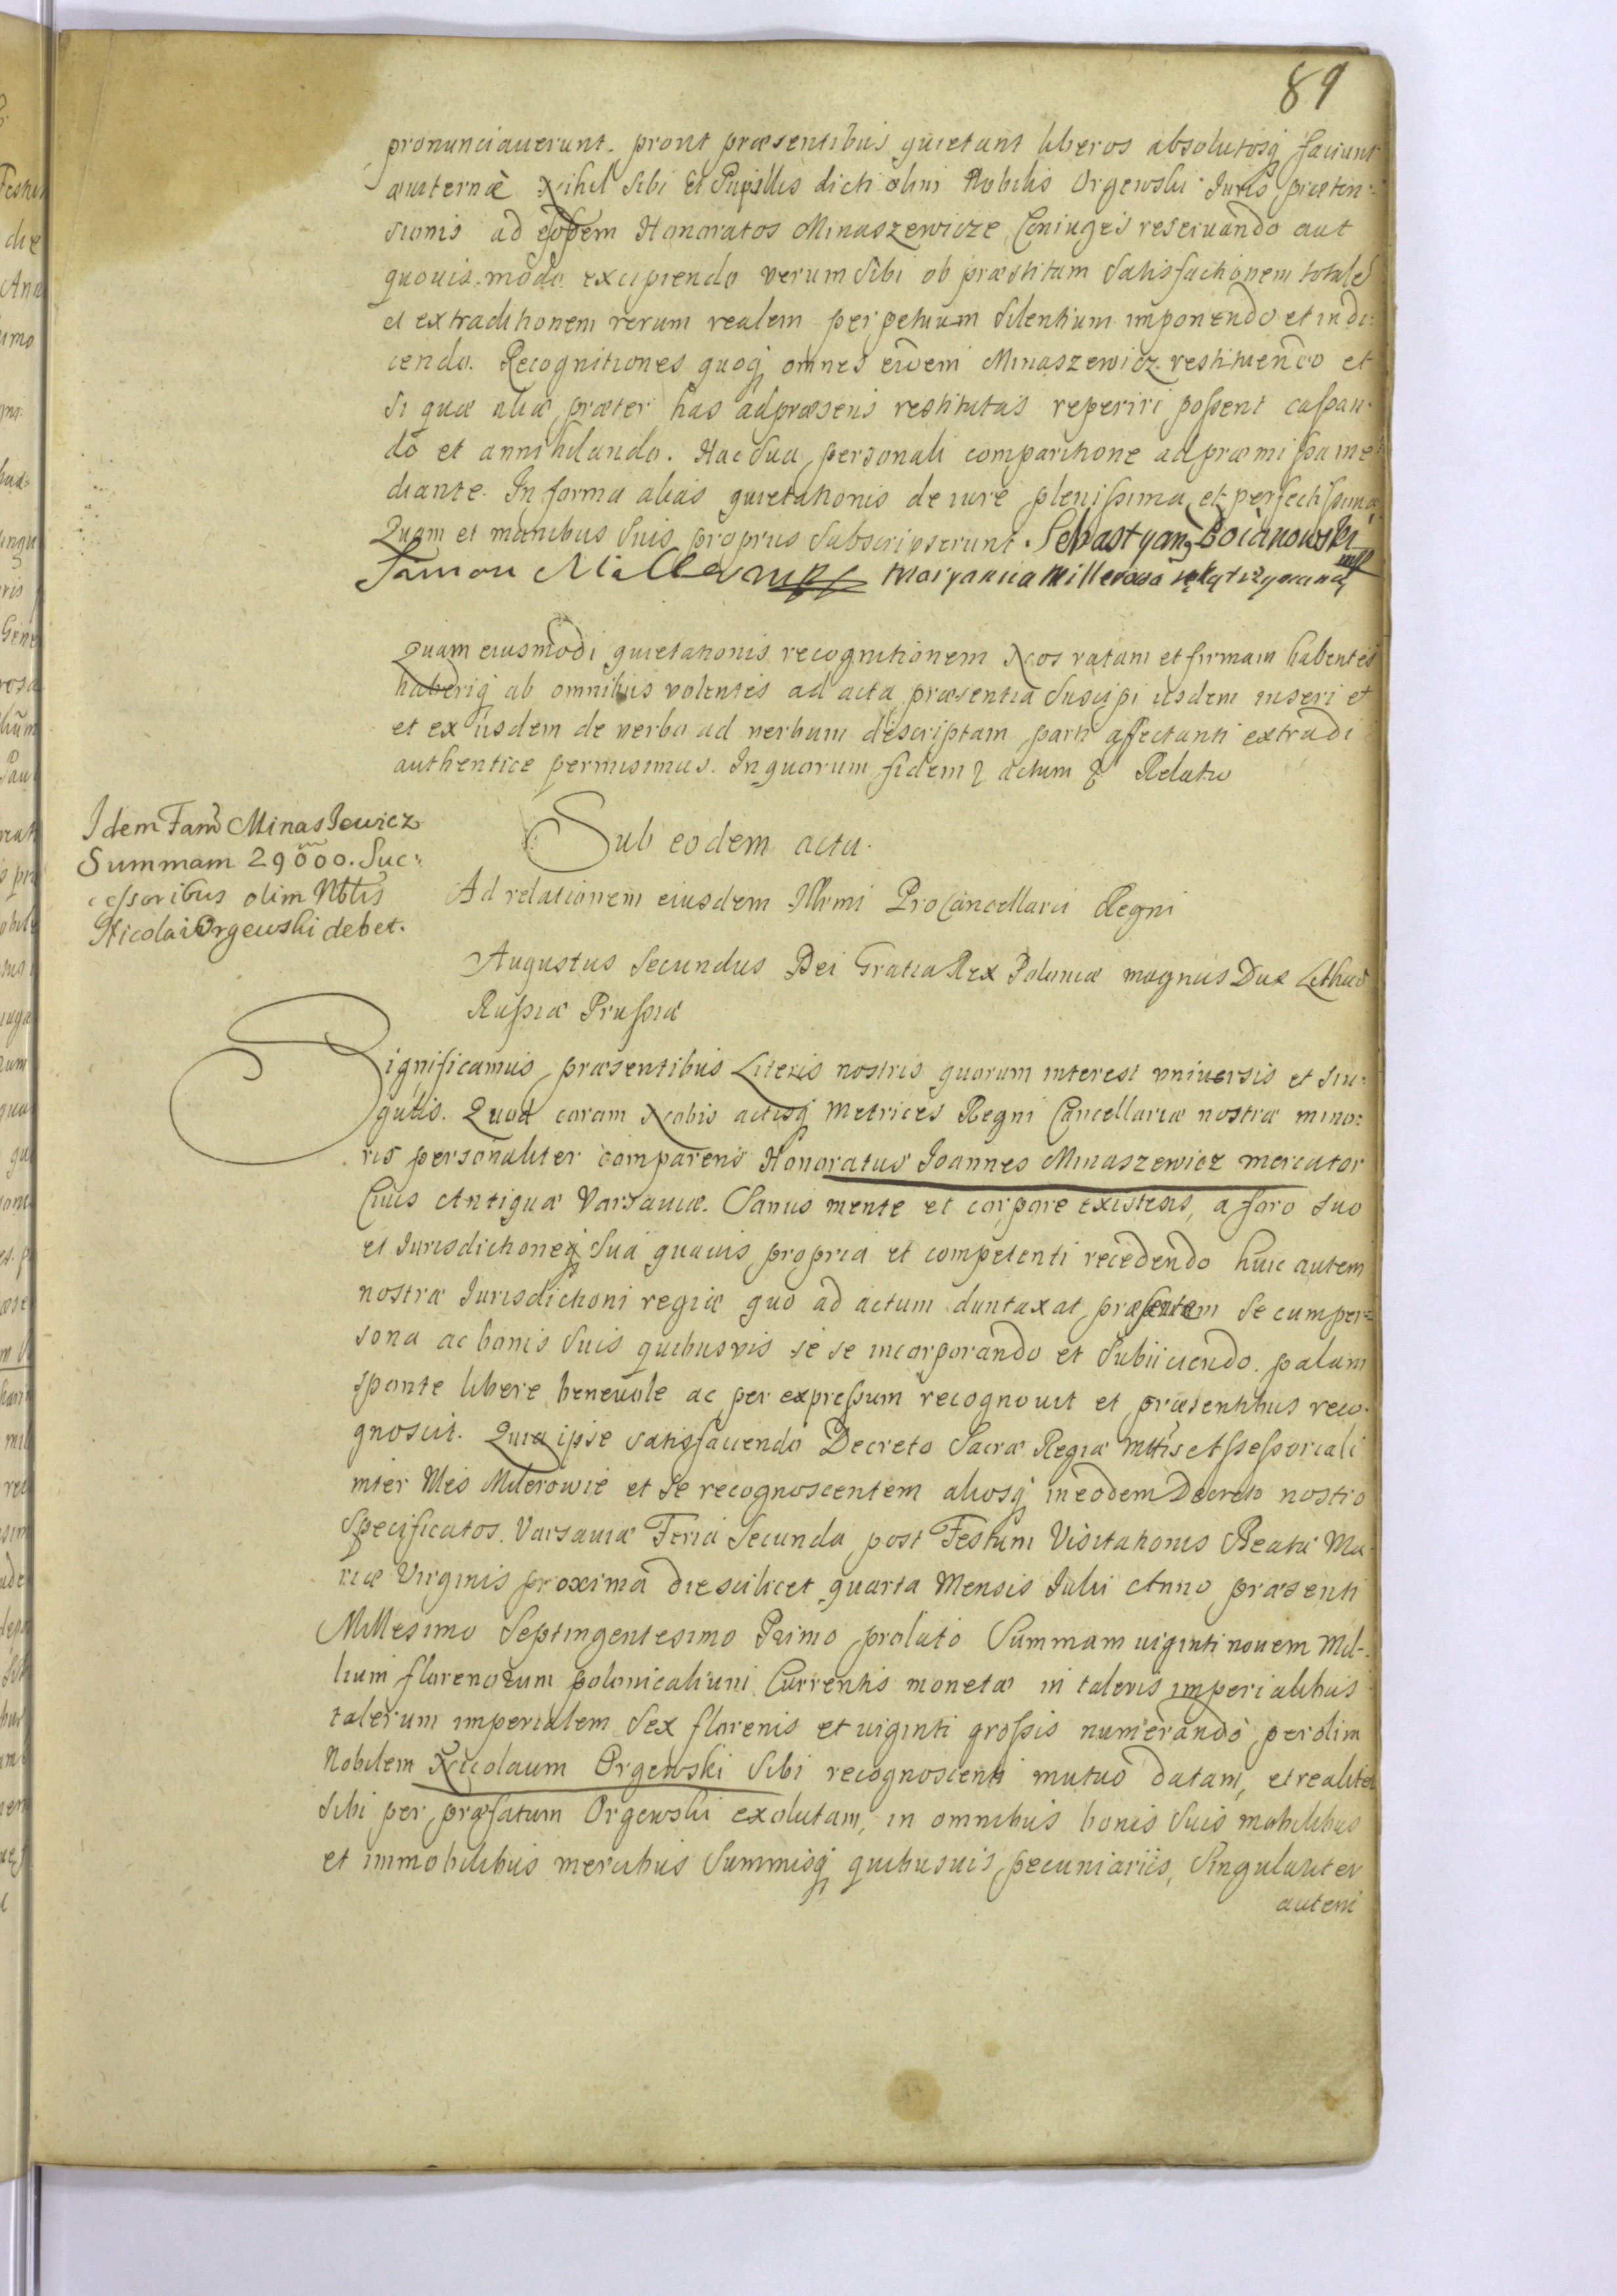 89
pronunciauerunt. prout præsentibus quietant liberos absolutosq faciunt
æuiternè Nihil sibi et Pupillis dicti olim Nobilis Orgewski Juris præten-
sionis ad eosdem Honoratos Minaszewicze Coniuges reseruando aut
quouis modo excipiendo verum sibi ob præstitam satisfactionem totale
et extraditionem rerum realem perpetuum silentium imponendo et indi:
cendo. Recognitiones quoq omnes eidem Minaszewicz restituendo et
si quæ aliæ præter has ad præsens restitutas reperiri possent cassan-
do et annihilando. Hac sua personali comparitione ad præmissa me
diante. In forma alias quietationis de iure plenissima et perfectissima
Quam et manibus suis propriis subscripserunt. Sebastyan Bocianowski
mp
Simon Miller mp Maryanna Millerowa ręką trzymaną
Quam eiusmodi quietationis recognitionem Nos ratam et firmam habentes
haberiq ab omnibus volentes ad acta præsentia suscipi iisdem inseri et
et ex iisdem de verbo ad verbum descriptam parti affectanti extradi
authentice permisimus. In quorum fidem & actum & Relatio
Idem Fam Minasiewicz
Summam 29000. Suc:
cessoribus olim Nblis
Nicolai Orgewski debet.
Sub eodem actu.
Ad relationem eiusdem Illrmi ProCancellarii Regni
Augustus Secundus Dei Gratia Rex Poloniæ magnus Dux Lithua
Russiæ Prussiæ
Significamus præsentibus Literis nostris quorum interest vniuersis et sin:
gulis. Quod coram Nobis actisq Metrices Regni Cancellariæ nostræ mino:
ris personaliter comparens Honoratus Joannes Minaszewicz mercator
Ciuis Antiquæ Varsauiæ. Sanus mente et corpore existens, a foro suo
et Jurisdictioneq sua quauis propria et competenti recedendo huic autem
nostræ Jurisdictioni regiæ quo ad actum duntaxat præsentem se cum per=
sona ac bonis suis quibusvis se se incorporando et subiiciendo. palam
sponte libere beneuole ac per expressum recognouit et præsentibus reco-
gnoscit. Quia ipse satisfaciendo Decreto Sacræ Regiæ Mttis Assessoriali
inter Nles Milerowie et se recognoscentem aliosq in eodem Decreto nostro
specificatos. Varsauiæ Feria Secunda post Festum Visitationis Beatæ Ma
riæ Virginis proxima die scilicet quarta Mensis Julii Anno præsenti
Millesimo Septingentesimo Primo prolato Summam uiginti nouem Mil-
lium florenorum polonicalium Currentis monetæ in taleris imperialibus
talerum imperialem sex florenis et uiginti grossis numerando per olim
Nobilem Nicolaum Orgewski sibi recognoscenti mutuo datam, et realiter
sibi per præfatum Orgewski exolutam, in omnibus bonis suis mobilibus
et immobilibus mercibus summisq quibusuis pecuniariis, singulariter
autem